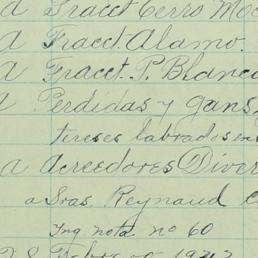 a Fracct. Cerro
a Fracct. Alamo.
a Fracct. P. Blanco
a Perdidas y gans.
tereses labrados en
a Acreedores Diver
a Sras. Reynaud
Ing nota no 60